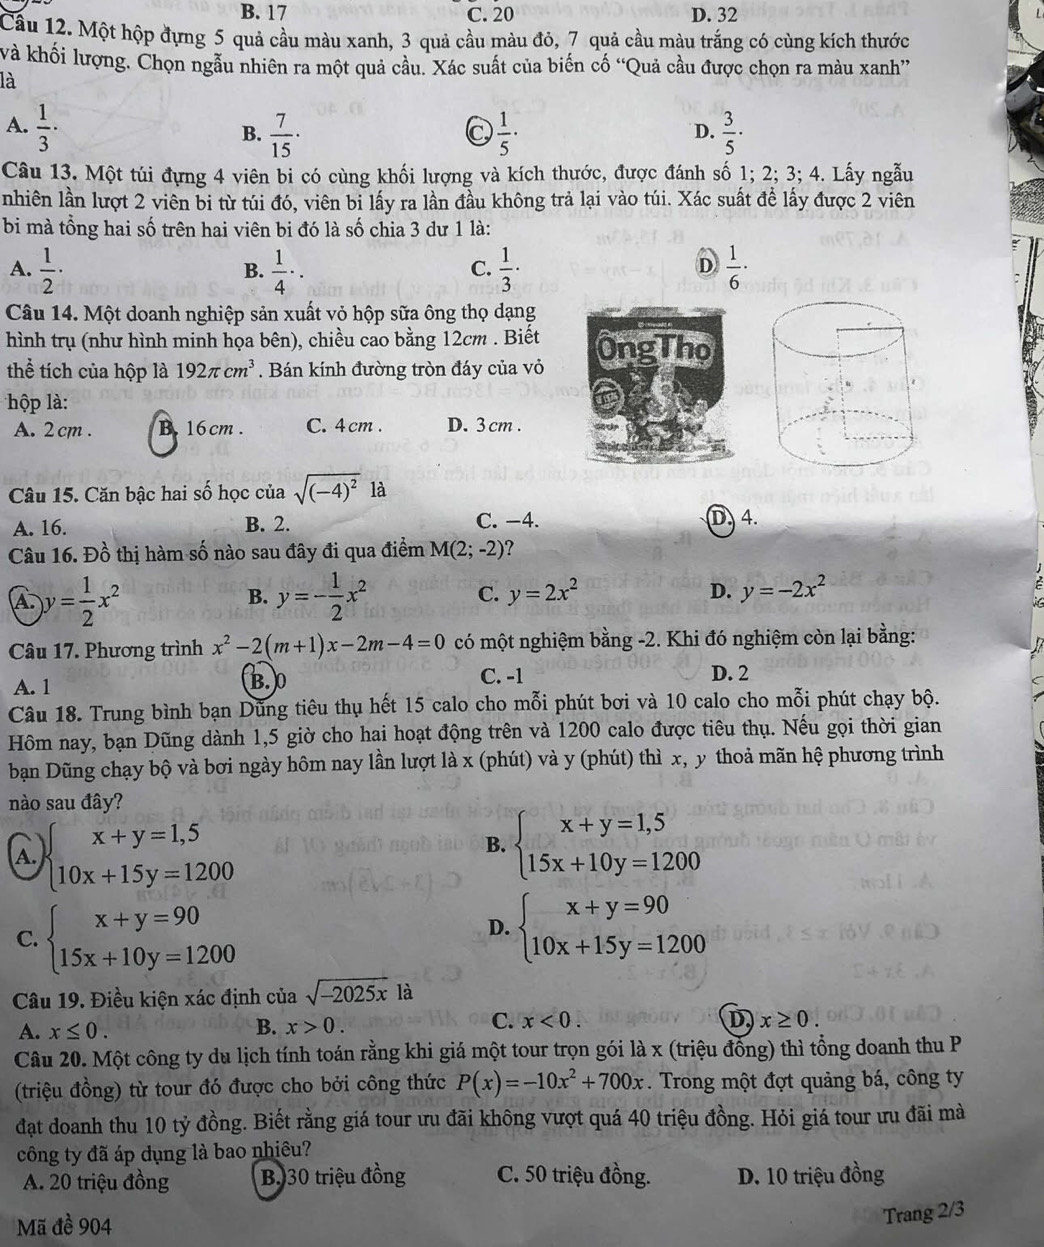 B. 17 C. 20 D. 32
Câu 12. Một hộp đựng 5 quả cầu màu xanh, 3 quả cầu màu đỏ, 7 quả cầu màu trắng có cùng kích thước
và khối lượng. Chọn ngẫu nhiên ra một quả cầu. Xác suất của biến cố “Quả cầu được chọn ra màu xanh”
là
A. 1/3. B. 7/15. C. 1/5. D. 3/5.
Câu 13. Một túi đựng 4 viên bi có cùng khối lượng và kích thước, được đánh số 1; 2; 3; 4. Lấy ngẫu
nhiên lần lượt 2 viên bi từ túi đó, viên bi lấy ra lần đầu không trả lại vào túi. Xác suất để lấy được 2 viên
bi mà tổng hai số trên hai viên bi đó là số chia 3 dư 1 là:
A. 1/2. B. 1/4. . C. 1/3. D. 1/6.
Câu 14. Một doanh nghiệp sản xuất vỏ hộp sữa ông thọ dạng
hình trụ (như hình minh họa bên), chiều cao bằng 12cm . Biết
thể tích của hộp là 192π cm³ . Bán kính đường tròn đáy của vỏ
hộp là:
A. 2 cm . B. 16 cm . C. 4 cm . D. 3 cm .
ÔngThọ
Câu 15. Căn bậc hai số học của √(−4)² là
A. 16. B. 2. C. −4. D. 4.
Câu 16. Đồ thị hàm số nào sau đây đi qua điểm M(2; -2)?
A. y = 1/2 x² B. y = −1/2 x² C. y = 2x² D. y = −2x²
Câu 17. Phương trình x² − 2(m+1)x − 2m − 4 = 0 có một nghiệm bằng -2. Khi đó nghiệm còn lại bằng:
A. 1 B. 0 C. -1 D. 2
Câu 18. Trung bình bạn Dũng tiêu thụ hết 15 calo cho mỗi phút bơi và 10 calo cho mỗi phút chạy bộ.
Hôm nay, bạn Dũng dành 1,5 giờ cho hai hoạt động trên và 1200 calo được tiêu thụ. Nếu gọi thời gian
bạn Dũng chạy bộ và bơi ngày hôm nay lần lượt là x (phút) và y (phút) thì x, y thoả mãn hệ phương trình
nào sau đây?
A. { x + y = 1,5 B. { x + y = 1,5
10x + 15y = 1200 15x + 10y = 1200
C. { x + y = 90 D. { x + y = 90
15x + 10y = 1200 10x + 15y = 1200
Câu 19. Điều kiện xác định của √−2025x là
A. x ≤ 0 . B. x > 0 . C. x < 0 . D. x ≥ 0 .
Câu 20. Một công ty du lịch tính toán rằng khi giá một tour trọn gói là x (triệu đồng) thì tổng doanh thu P
(triệu đồng) từ tour đó được cho bởi công thức P(x) = −10x² + 700x . Trong một đợt quảng bá, công ty
đạt doanh thu 10 tỷ đồng. Biết rằng giá tour ưu đãi không vượt quá 40 triệu đồng. Hỏi giá tour ưu đãi mà
công ty đã áp dụng là bao nhiêu?
A. 20 triệu đồng B. 30 triệu đồng C. 50 triệu đồng. D. 10 triệu đồng
Mã đề 904 Trang 2/3